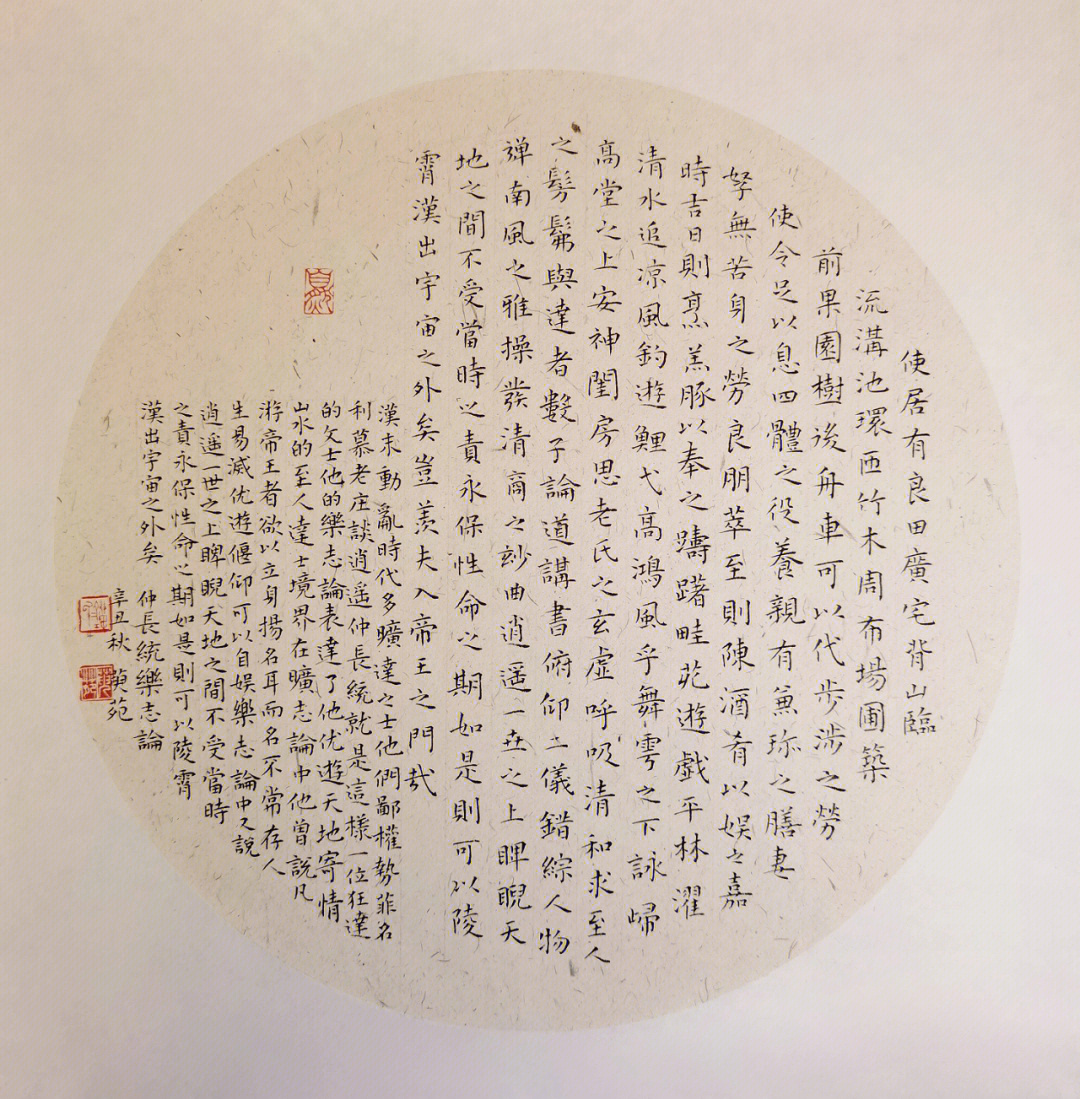 使居有良田廣宅背山臨
流溝池環匝竹木周布場圃築
前果園樹後舟車可以代步涉之勞
使令足以息四體之役養親有兼珎之膳妻
孥無苦身之勞良朋萃至則陳酒肴以娛之嘉
時吉日則烹羔豚以奉之躊躇畦苑遊戲平林濯
清水追凉風釣遊鯉弋高鴻風乎舞雩之下詠歸
高堂之上安神閨房思老氏之玄虛呼吸清和求至人
之髣髴與達者數子論道講書俯仰二儀錯綜人物
彈南風之雅操發清商之玅曲逍遥一世之上睥睨天
地之間不受當時之責永保性命之期如是則可以陵
霄漢出宇宙之外矣豈羨夫入帝王之門哉
漢末動亂時代多曠達之士他們鄙權勢菲名
利慕老庄談逍遥仲長統就是這樣一位狂達
的文士他的樂志論表達了他优遊天地寄情
山水的至人達士境界在曠志論中他曾説凡
游帝王者欲以立身揚名耳而名不常存人
生易滅优遊偃仰可以自娱樂志論中又説
逍遥一世之上睥睨天地之間不受當時
之責永保性命之期如是則可以陵霄
漢出宇宙之外矣 仲長統樂志論
辛丑秋 苑